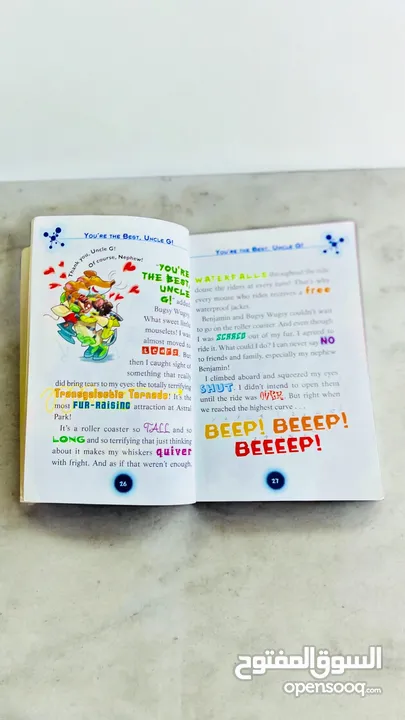 YOU'RE THE BEST, UNCLE G!
Thank you, Uncle G!
Of course, Nephew!
"YOU'RE
THE BEST,
UNCLE
G!" added
Bugsy Wugsy.
What sweet little
mouselets! I was
almost moved to
TEARS. But
then I caught sight of
something that really
did bring tears to my eyes: the totally terrifying
Tornado! It's the
most FUR-RAISING attraction at Astral
Park!
It's a roller coaster so TALL and so
LONG and so terrifying that just thinking
about it makes my whiskers quiver
with fright. And as if that weren't enough,
26
YOU'RE THE BEST, UNCLE G!
WATERFALLS throughout the ride
douse the riders at every turn! That's why
every mouse who rides receives a free
waterproof jacket.
Benjamin and Bugsy Wugsy couldn't wait
to go on the roller coaster. And even though
I was SCARED out of my fur, I agreed to
ride it. What could I do? I can never say NO
to friends and family, especially my nephew
Benjamin!
I climbed aboard and squeezed my eyes
SHUT. I didn't intend to open them
until the ride was OVER. But right when
we reached the highest curve . . .
BEEP! BEEEP!
BEEEEP!
27
السوق المفتوح
opensooq.com